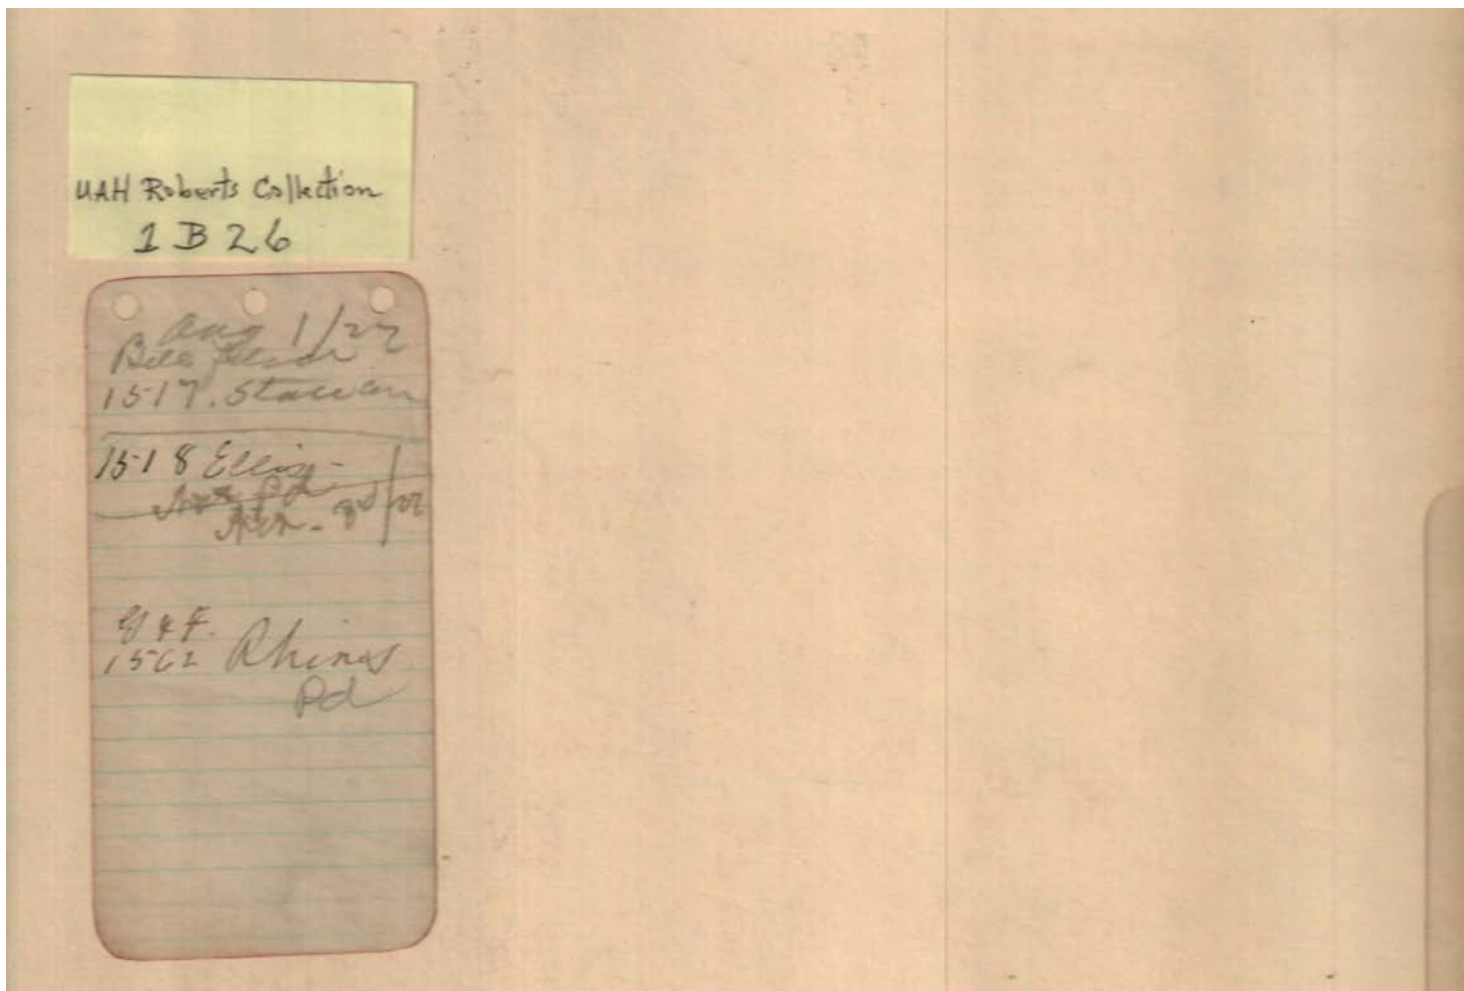 UAH Roberts Collection
1 B 26
Aug 1/22
Bill
1517.
1518 Ellis -
Pd
- 3rd/22
G & F.
1562 Rhines
Pd